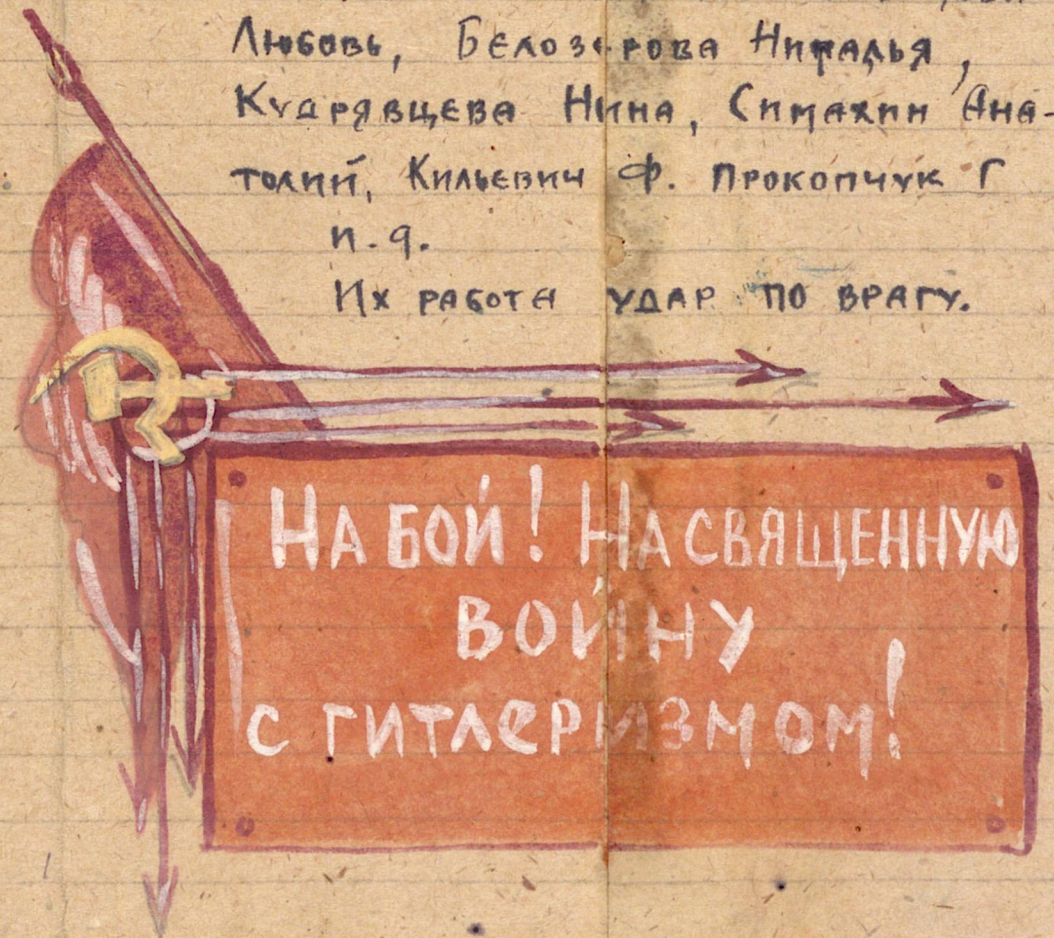 Любовь, Белозерова Наталья,
Кудрявцева Нина, Симахин Ана-
толий, Кильевич Ф. Прокопчук Г
и.д.
Их работа удар по врагу.
На бой! На священную
войну
с гитлеризмом!